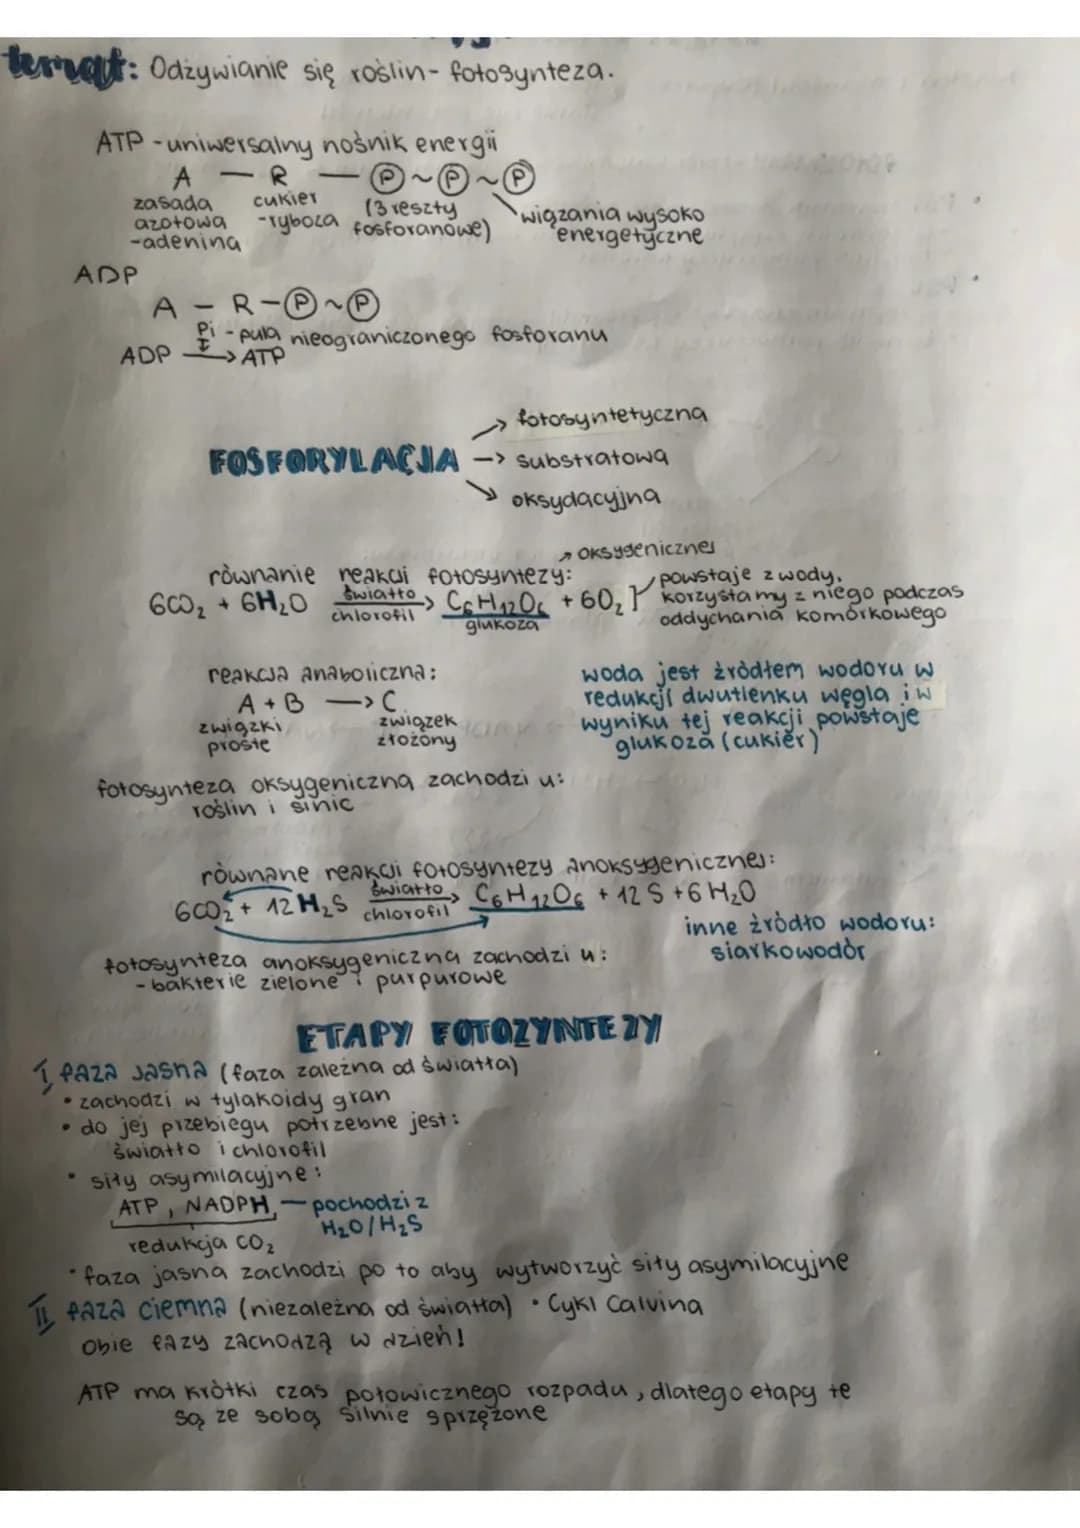 temat: Odżywianie się roślin - fotosynteza.
ATP - uniwersalny nośnik energii
A — R — P ~ P ~ P
zasada azotowa -adenina
cukier -ryboza
(3 reszty fosforanowe)
wiązania wysoko energetyczne
ADP
A - R - P ~ P
Pi - pula nieograniczonego fosforanu
ADP → ATP
FOSFORYLACJA
→ fotosyntetyczna
→ substratowa
→ oksydacyjna
→ oksygenicznej
równanie reakcji fotosyntezy:
6CO₂ + 6H₂O światło → chlorofil C₆H₁₂O₆ + 6O₂
glukoza
powstaje z wody,
korzystamy z niego podczas
oddychania komórkowego
reakcja anaboliczna:
A + B → C
związki proste
związek złożony
woda jest źródłem wodoru w
redukcji dwutlenku węgla i w
wyniku tej reakcji powstaje
glukoza (cukier)
fotosynteza oksygeniczna zachodzi u:
roślin i sinic
równane reakcji fotosyntezy anoksygenicznej:
6CO₂ + 12H₂S światło → chlorofil C₆H₁₂O₆ + 12S + 6H₂O
inne źródło wodoru:
siarkowodór
fotosynteza anoksygeniczna zachodzi u:
- bakterie zielone i purpurowe
ETAPY FOTOZYNTEZY
I faza jasna (faza zależna od światła)
• zachodzi w tylakoidy gran
• do jej przebiegu potrzebne jest:
światło i chlorofil
• siły asymilacyjne:
ATP, NADPH, — pochodzi z
H₂O/H₂S
redukcja CO₂
• faza jasna zachodzi po to aby wytworzyć siły asymilacyjne
II faza ciemna (niezależna od światła) • Cykl Calvina
Obie fazy zachodzą w dzień!
ATP ma krótki czas połowicznego rozpadu, dlatego etapy te
są ze sobą silnie sprzężone